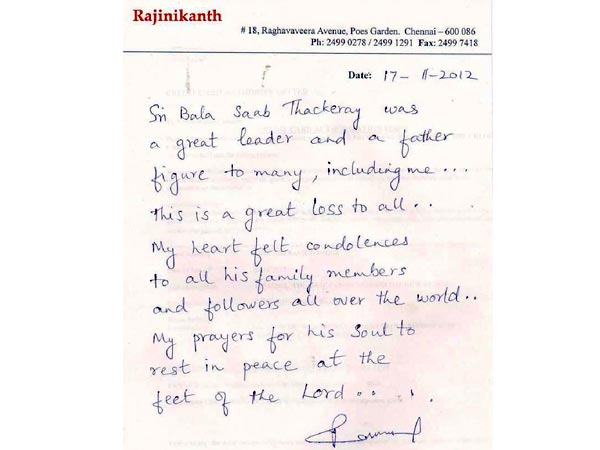 Rajinikanth
# 18, Raghavaveera Avenue, Poes Garden. Chennai – 600 086
Ph: 2499 0278 / 2499 1291 Fax: 2499 7418
Date: 17 - 11-2012
Sri Bala Saab Thackeray was
a great leader and a father
figure to many, including me ...
This is a great loss to all ..
My heart felt condolences
to all his family members
and followers all over the world..
My prayers for his soul to
rest in peace at the
feet of the Lord .. . .